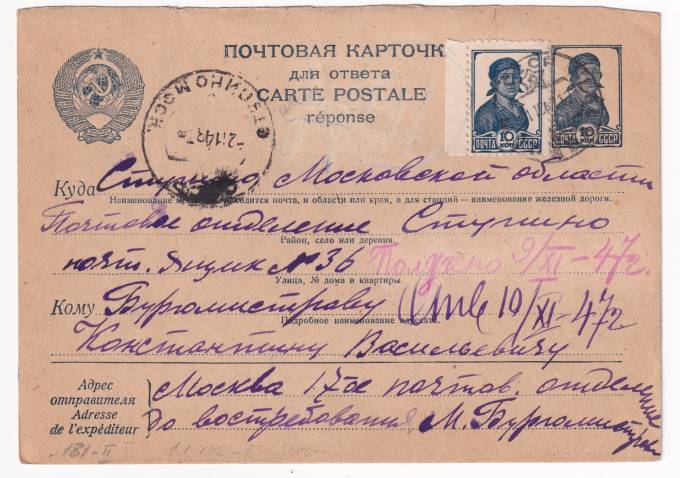 ПОЧТОВАЯ КАРТОЧКА
для ответа
CARTE POSTALE
réponse
10 КОП
ПОЧТА СССР
10 КОП
ПОЧТА СССР
СТУПИНО МОСК.
Куда Ступино Московской области
Наименование места, где находится почта, и области или края, а для станций — наименование железной дороги.
Почтовое отделение Ступино
Район, село или деревня.
почт. ящик № 36 Получено 9/XI-47г.
Улица, № дома и квартиры.
Кому Бургомистрову Отв 10/XI-47г
Подробное наименование адресата.
Константину Васильевичу
Адрес отправителя
Adresse de l'expéditeur
Москва 17-ое почтов. отделение
до востребования М. Бургомистров
181-II